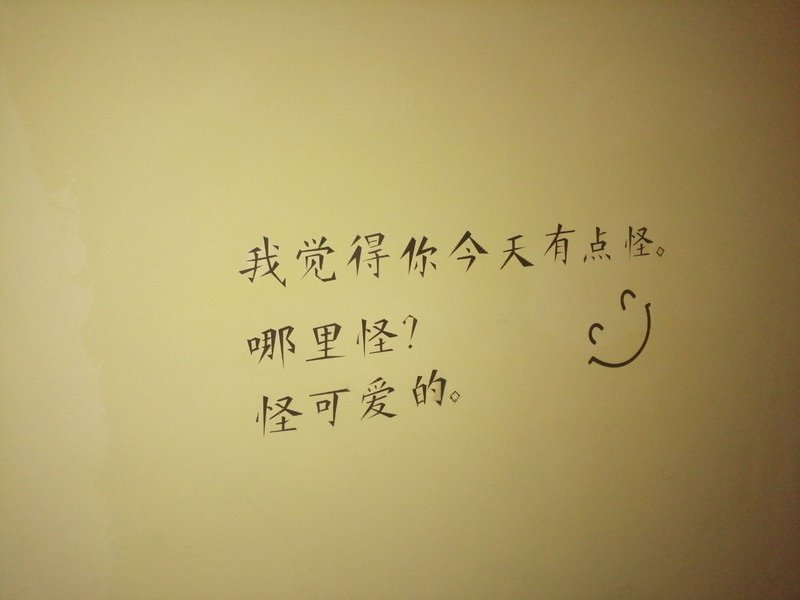 我觉得你今天有点怪。
哪里怪?
怪可爱的。